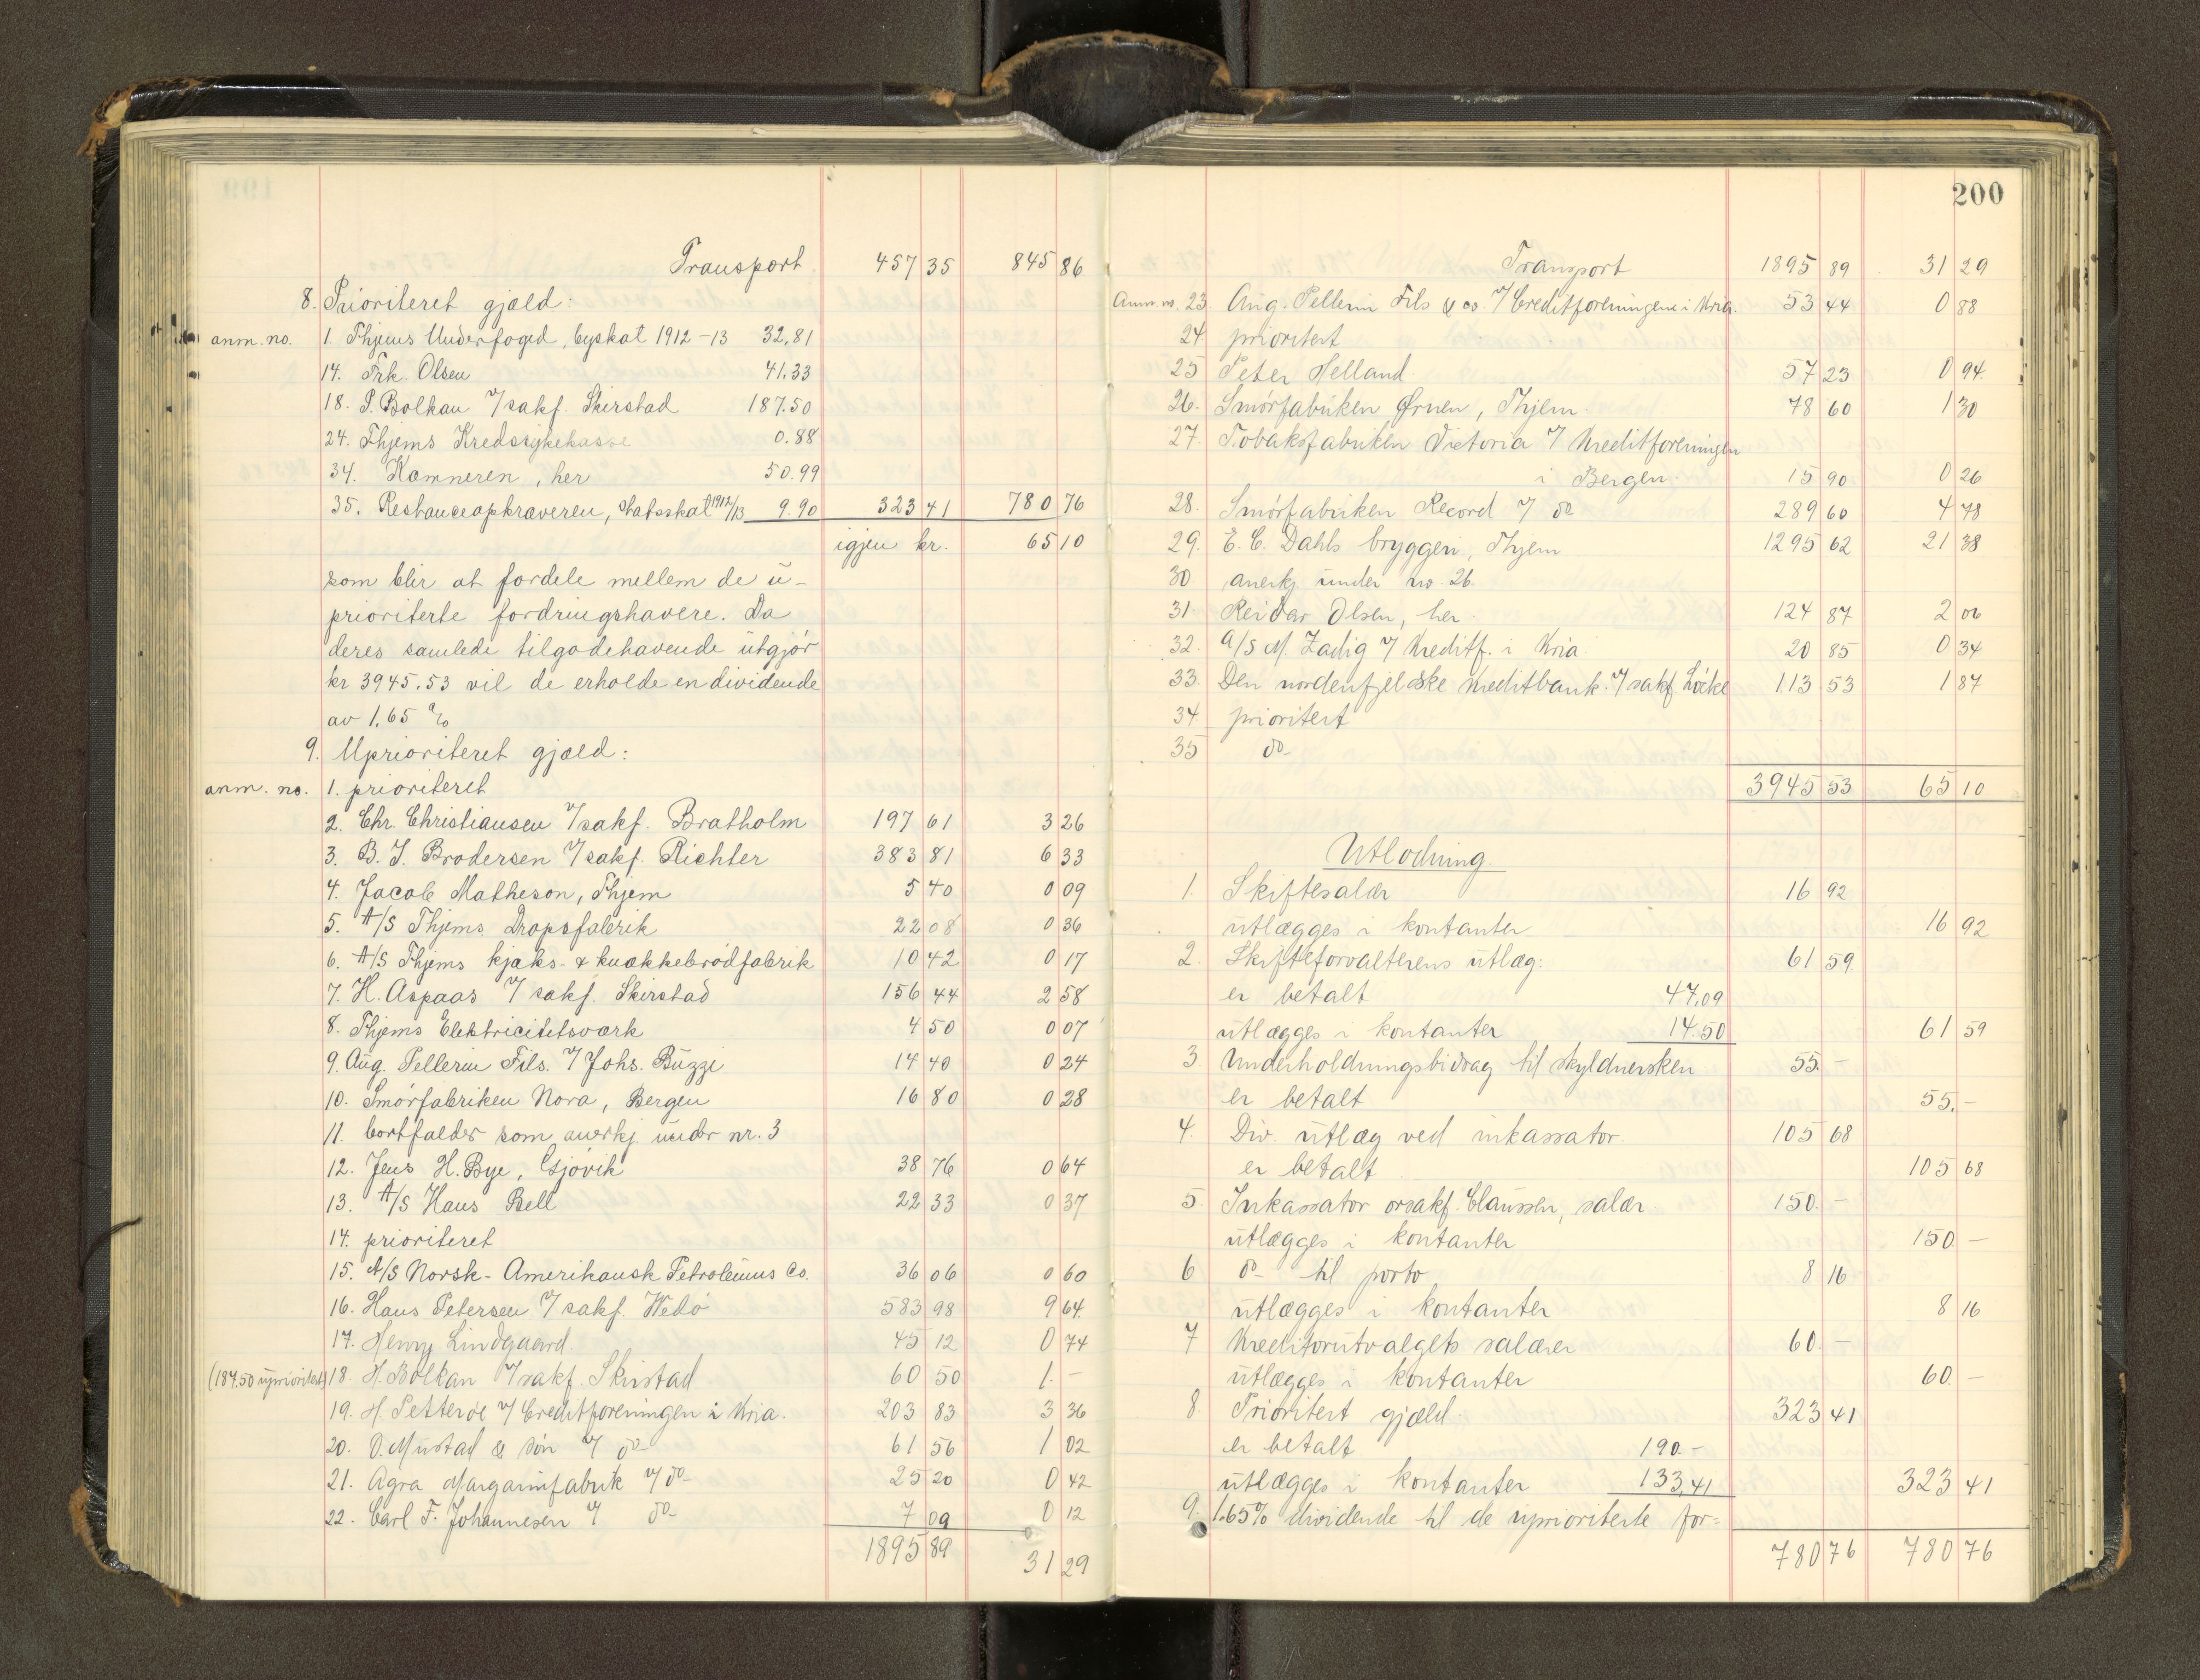 Transport 457 35 845 86
8. Prioriteret gjæld:
anm. no. 1. Thjems Underfoged, byskat 1912-13 32,81
14. Frk. Olsen 41.33
18. P. Bolkan v/ sakf. Skirstad 187.50
24. Thjems Kredssykekasse 0.88
34. Kæmneren, her 50.99
35. Restanceopkræveren, statsskat 1912/13 9.90 323 41 780 76
igjen kr. 65 10
som blir at fordele mellem de u-
prioriterte fordringshavere. Da
deres samlede tilgodehavende utgjør
kr 3945.53 vil de erholde en dividende
av 1.65 %
9. Uprioriteret gjæld:
anm. no. 1. prioriteret
2. Chr. Christiansen v/ sakf. Bratholm 197 61 3 26
3. B. J. Brodersen v/ sakf. Richter 383 81 6 33
4. Jacob Matheson, Thjem 5 40 0 09
5. A/S Thjems Dropsfabrik 22 08 0 36
6. A/S Thjems kjæks- & knækkebrødfabrik 10 42 0 17
7. H. Aspaas v/ sakf. Skirstad 156 44 2 58
8. Thjems Elektricitetsværk 4 50 0 07
9. Aug. Pellerin Fils. v/ Johs. Buzzi 14 40 0 24
10. Smørfabriken Nora, Bergen 16 80 0 28
11. bortfalder som anerkj. under nr. 3
12. Jens H. Bye, Gjøvik 38 76 0 64
13. A/S Hans Bell 22 33 0 37
14. prioriteret
15. A/S Norsk-Amerikansk Petroleums Co. 36 06 0 60
16. Hans Petersen v/ sakf. Wedø 583 98 9 64
17. Henry Lindgaard 45 12 0 74
(187.50 uprioritert) 18. H. Bolkan v/ sakf. Skirstad 60 50 1. -
19. H. Petterøe v/ Creditforeningen i Kria. 203 83 3 36
20. O. Mustad & Søn v/ do- 61 56 1 02
21. Agra Margarinfabrik v/ do- 25 20 0 42
22. Carl F. Johannesen v/ do- 7 09 0 12
1895 89 31 29
200
Transport 1895 89 31 29
Anm. no. 23 Aug. Pellerin Fils & co. v/ Creditforeningen i Kria. 53 44 0 88
24 prioritert
25 Peter Helland 57 23 0 94
26. Smørfabriken Ørnen, Thjem. 78 60 1 30
27. Tobaksfabriken Victoria v/ Kreditforeningen
i Bergen. 15 90 0 26
28. Smørfabriken Record v/ do 289 60 4 78
29. E. C. Dahls bryggeri, Thjem 1295 62 21 38
30 anerkj. under no. 26.
31. Reidar Olsen, her. 124 87 2 06
32. A/S M. Zadig v/ Kreditf. i Kria. 20 85 0 34
33. Den nordenfjelske Kreditbank v/ sakf. Löcke 113 53 1 87
34 prioritert
35 do-
3945 53 65 10
Utlodning.
1. Skiftesalær 16 92
utlægges i kontanter 16 92
2. Skifteforvalterens utlæg: 61 59
er betalt 47,09
utlægges i kontanter 14.50 61 59
3 Underholdningsbidrag til skyldnersken 55. -
er betalt 55. -
4. Div. utlæg ved inkassator. 105 68
er betalt 105 68
5 Inkassator orsakf. Claussen, salær 150. -
utlægges i kontanter 150 -
6 do- til porto 8 16
utlægges i kontanter 8 16
7 Kreditorutvalgets salærer 60. -
utlægges i kontanter 60. -
8. Prioritert gjæld. 323 41
er betalt 190.-
utlægges i kontanter 133,41 323 41
9. 1.65% dividende til de uprioriterte for=
780 76 780 76